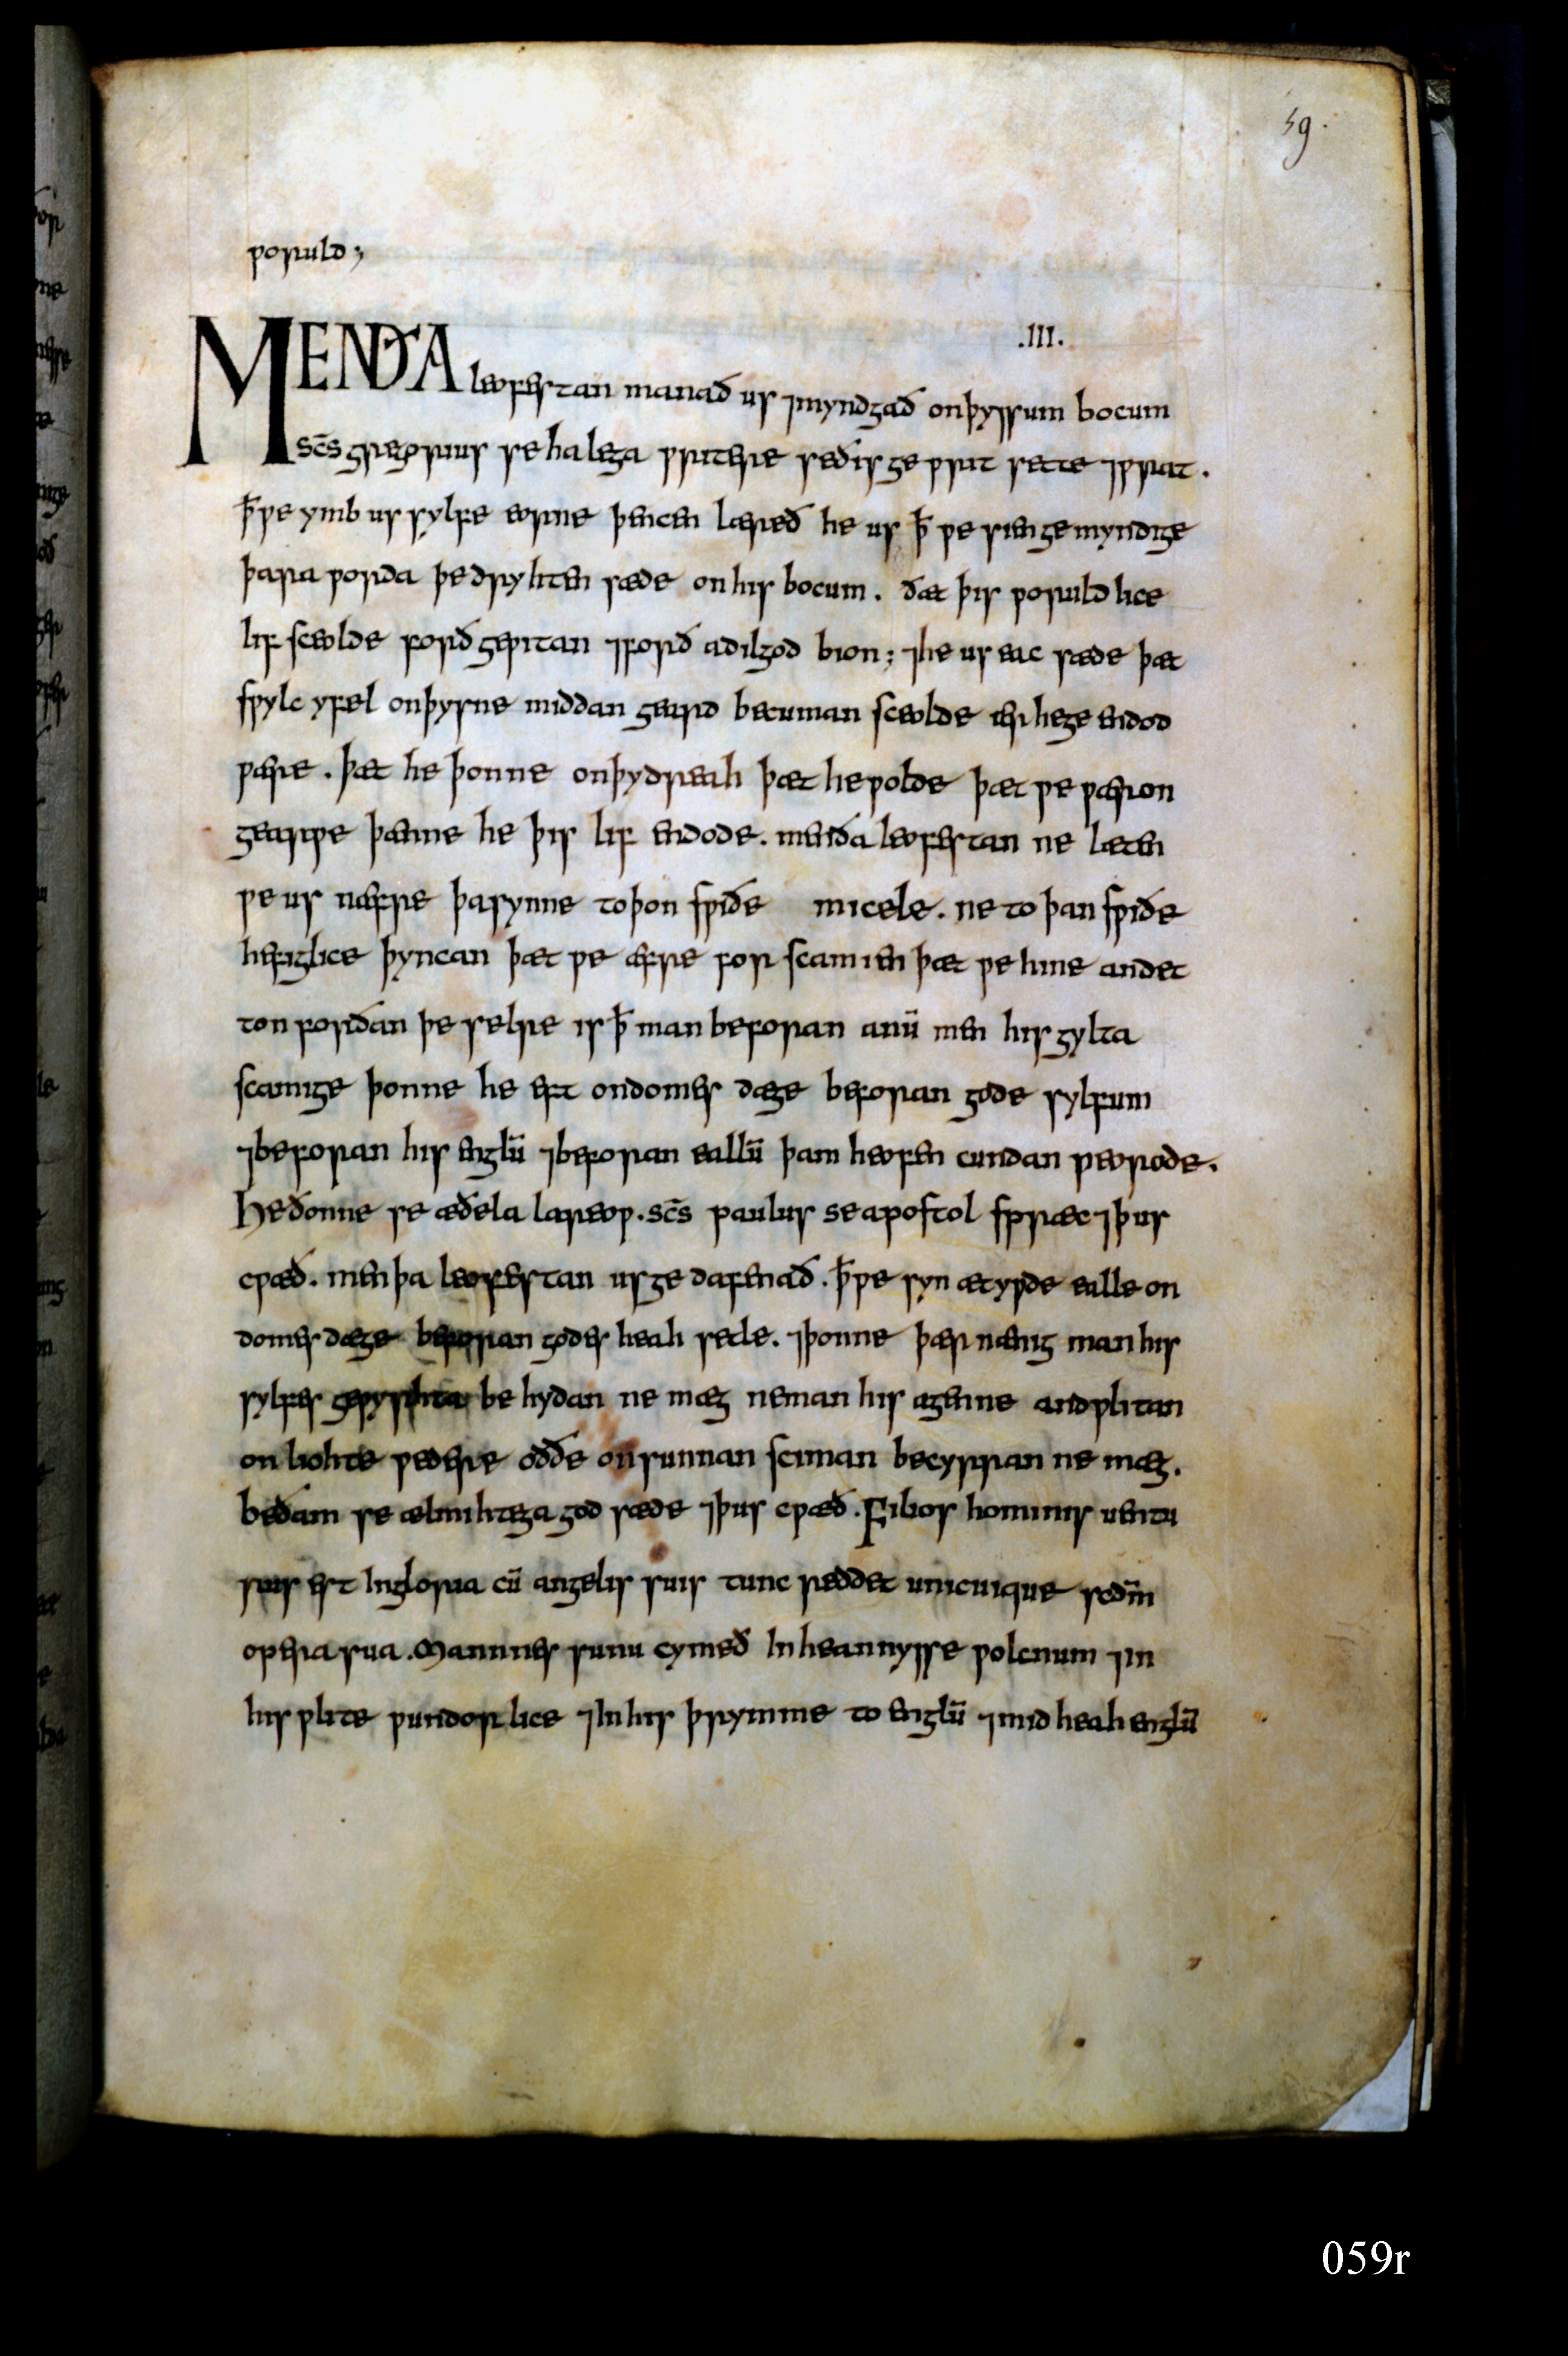 59.
ƿoruld;
.III.
MENÐA leofestan manað us ⁊myndgað onþyssum bocum
sc̄s gregorius sehalega writere seðis gewrit sette ⁊wrat.
ꝥwe ymb us sylfe eorne þencen læreð he us ꝥ we sien gemyndige
þara worda þe dryhten sæde onhis bocum. ðæt þis woruldlice
lif sceolde forð gewitan ⁊forð adilgod bion; ⁊he us eac sæde þæt
swylc yfel onþysne middan geard becuman sceolde ær hege endod
wære. þæt he þonne onþydreah þæt hewolde þæt we wæron
gearwe þænne he þis lif endode. menða leofestan ne læten
we us næfre þasynne toþon swiðe micele. ne to þan swiðe
hefiglice þyncan þæt we æfre for scamien þæt we hine andet
ton forðan þe selre is ꝥ man beforan anū men his gylta
scamige þonne he eft ondomes dæge beforan gode sylfum
⁊beforan his englū ⁊beforan eallū þam heofen cundan weorode.
Heðonne se æðela lareow. sc̄s paulus se apostol spræc ⁊þus
cwæð. men þa leofestan us ge dafenað. ꝥwe syn ætywde ealle on
domes dæge beforan godes heah setle. ⁊þonne þær nænig man his
sylfes gewyrhta be hydan ne mæg neman his agenne andwlitan
on liohte wedere oððe onsunnan sciman becyrran ne mæg.
beðam se ælmihtega god sæde ⁊þus cwæð. Filios hominis uentu
ruis est Ingloria cū angelis suis tunc reddet unicuique secdm̄
opera sua. Mannnes sunu cymeð In heannysse wolcnum ⁊in
his wlite wundorlice ⁊In his þrymme to englū ⁊mid heah englū
059r